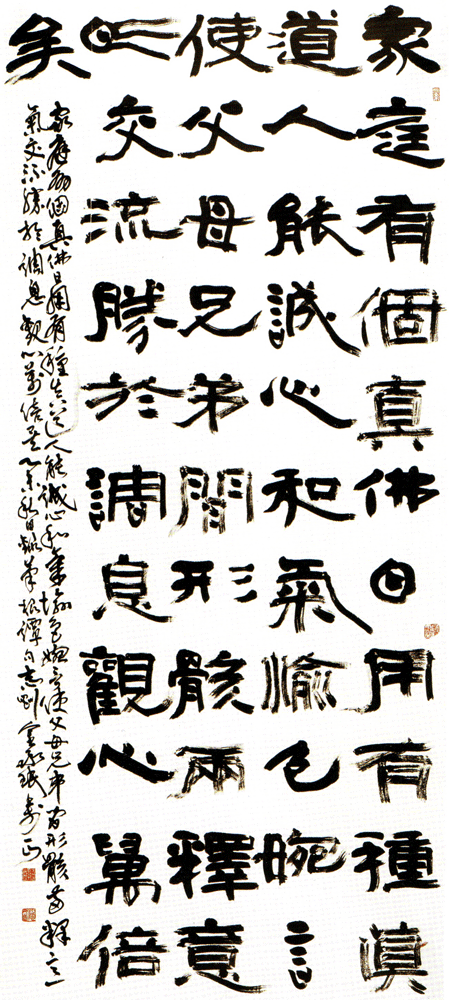 家庭有個真佛日用有種真
道人能誠心和氣愉色婉言
使父母兄弟間形骸兩釋意
氣交流勝於調息觀心萬倍
矣
家庭有個真佛日用有種真道人能誠心和氣愉色婉言使父母兄弟間形骸兩釋意
氣交流勝於調息觀心萬倍矣